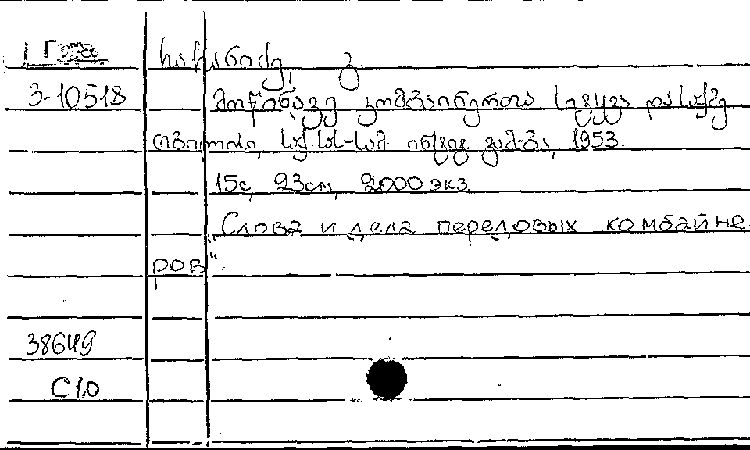 1 Г
3-10518
მოწინავე კომბაინერთა სიტყვა და საქმე
თბილისი, 1953.
15с, 23см, 2000 экз.
„Слова и дела передовых комбайне
ров“.
38649
С1.0